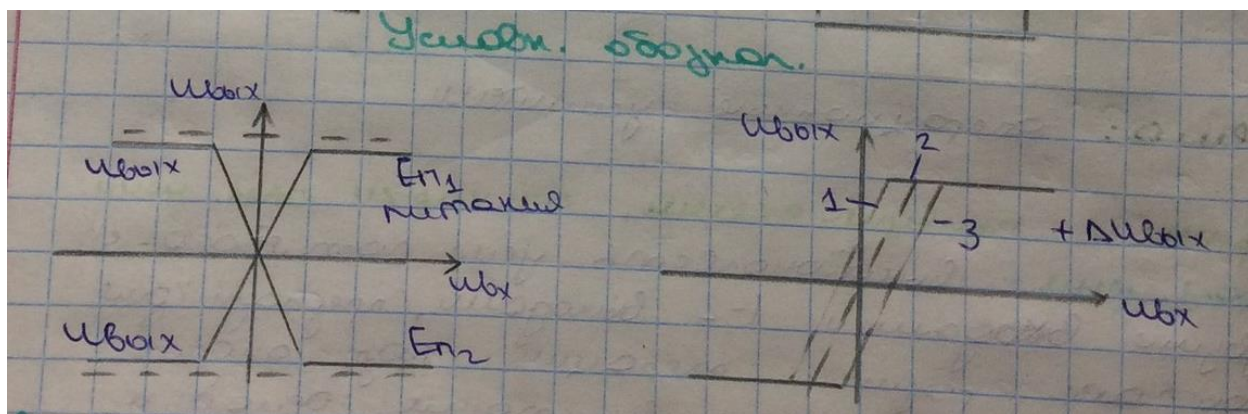 Условн. обознач.
Uвых
Uвых
Eп1
питания
Uвх
Uвых
Eп2
Uвых
2
1
3
+ΔUвых
Uвх